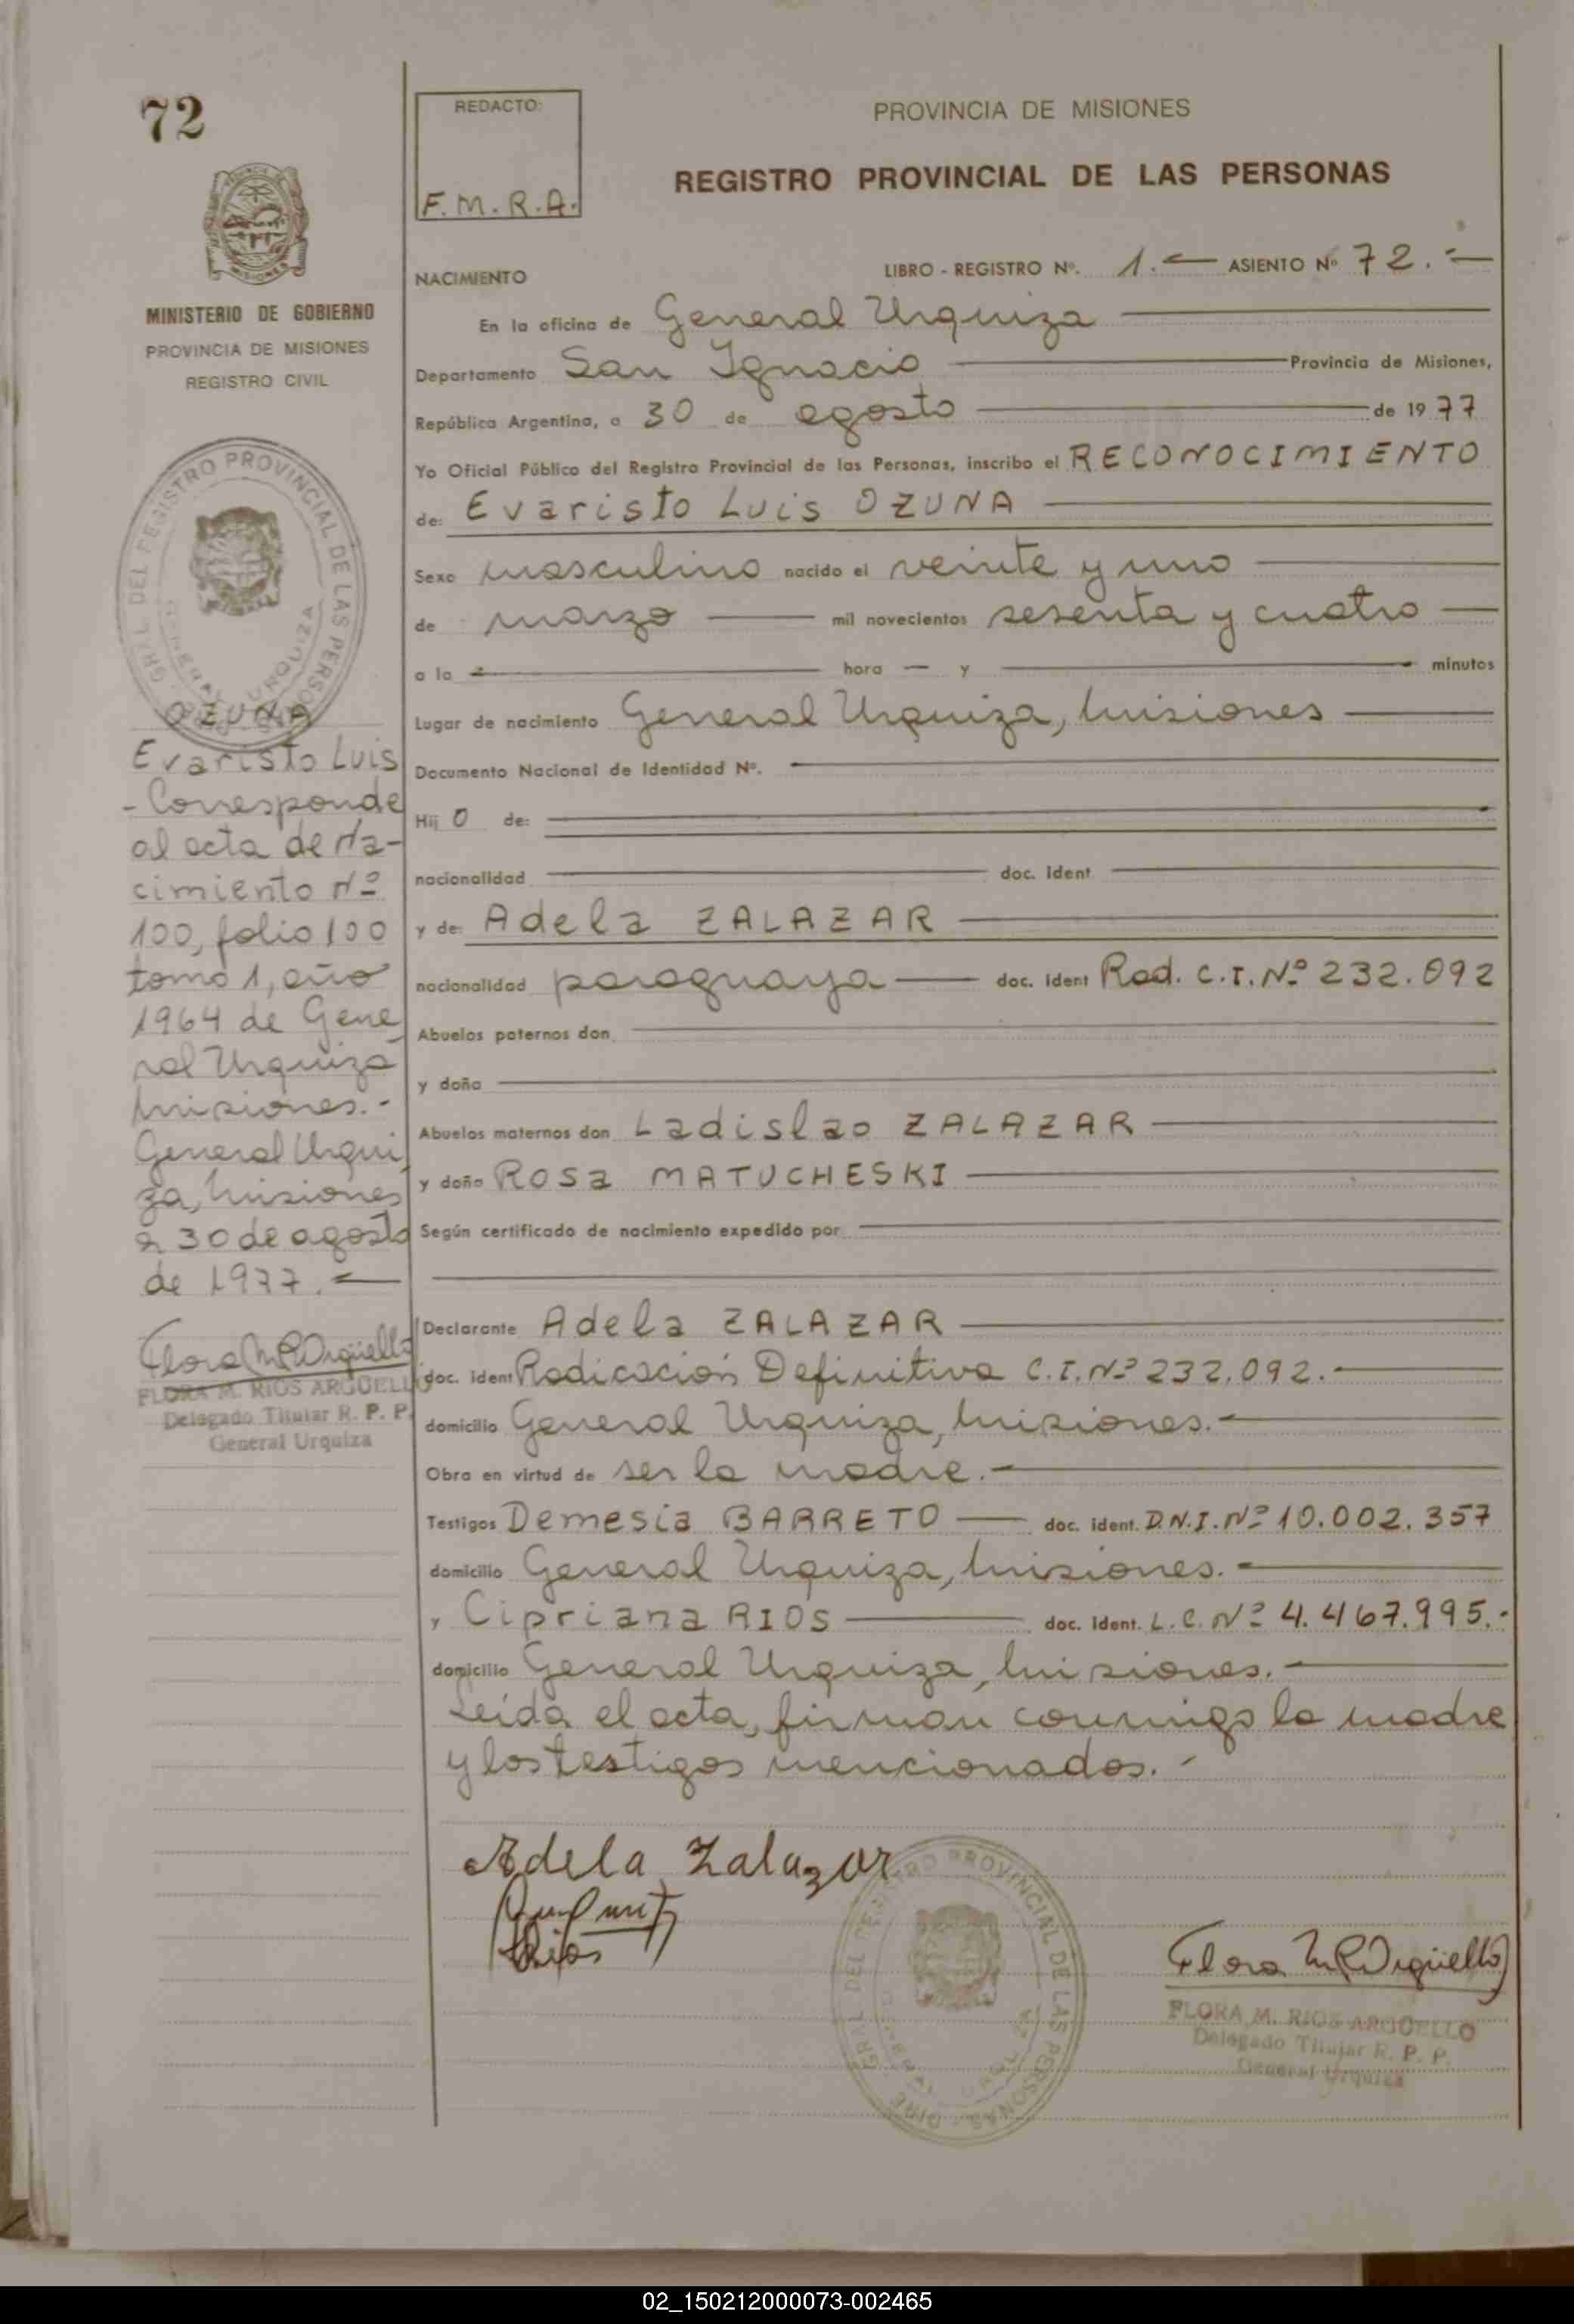 72
REDACTO:
F. M. R. A.
PROVINCIA DE MISIONES
REGISTRO PROVINCIAL DE LAS PERSONAS
MISIONES
MINISTERIO DE GOBIERNO
PROVINCIA DE MISIONES
REGISTRO CIVIL
NACIMIENTO
LIBRO - REGISTRO Nº. 1.- ASIENTO Nº 72.-
En la oficina de General Urquiza
Departamento San Ignacio Provincia de Misiones,
República Argentina, a 30 de agosto de 1977
Yo Oficial Público del Registro Provincial de las Personas, inscribo el RECONOCIMIENTO
de: Evaristo Luis OZUNA
Sexo masculino nacido el veinte y uno
de marzo mil novecientos sesenta y cuatro
a la hora y minutos
Lugar de nacimiento General Urquiza, Misiones
Documento Nacional de Identidad Nº.
Hij o de:
nacionalidad doc. Ident
y de: Adela ZALAZAR
nacionalidad paraguaya doc. Ident Rad. C.I. Nº 232.092
Abuelos paternos don
y doña
Abuelos maternos don Ladislao ZALAZAR
y doña Rosa MATUCHESKI
Según certificado de nacimiento expedido por
Declarante Adela ZALAZAR
doc. Ident Radicación Definitiva C.I. Nº 232.092.-
domicilio General Urquiza, Misiones.-
Obra en virtud de ser la madre.-
Testigos Demesia BARRETO doc. ident. D.N.I. Nº 10.002.357
domicilio General Urquiza, Misiones.-
y Cipriana RIOS doc. Ident. L.C. Nº 4.467.995.-
domicilio General Urquiza, Misiones.-
Leída el acta, firman conmigo la madre
y los testigos mencionados.-
GRAL DEL REGISTRO PROVINCIAL DE LAS PERSONAS
GENERAL URQUIZA
OZUNA
Evaristo Luis
- Corresponde
al acta de Na-
cimiento Nº
100, folio 100
tomo 1, año
1964 de Gene
ral Urquiza
Misiones.-
General Urqui
za, Misiones
a 30 de agosto
de 1977.-
Flora M R Argüello
FLORA M. RIOS ARGÜELLO
Delegado Titular R. P. P.
General Urquiza
Adela Zalazar
Rios
GRAL DEL REGISTRO PROVINCIAL DE LAS PERSONAS - DIRE
Flora M R Argüello
FLORA M. RIOS ARGÜELLO
Delegado Titular R. P. P.
General Urquiza
02_150212000073-002465